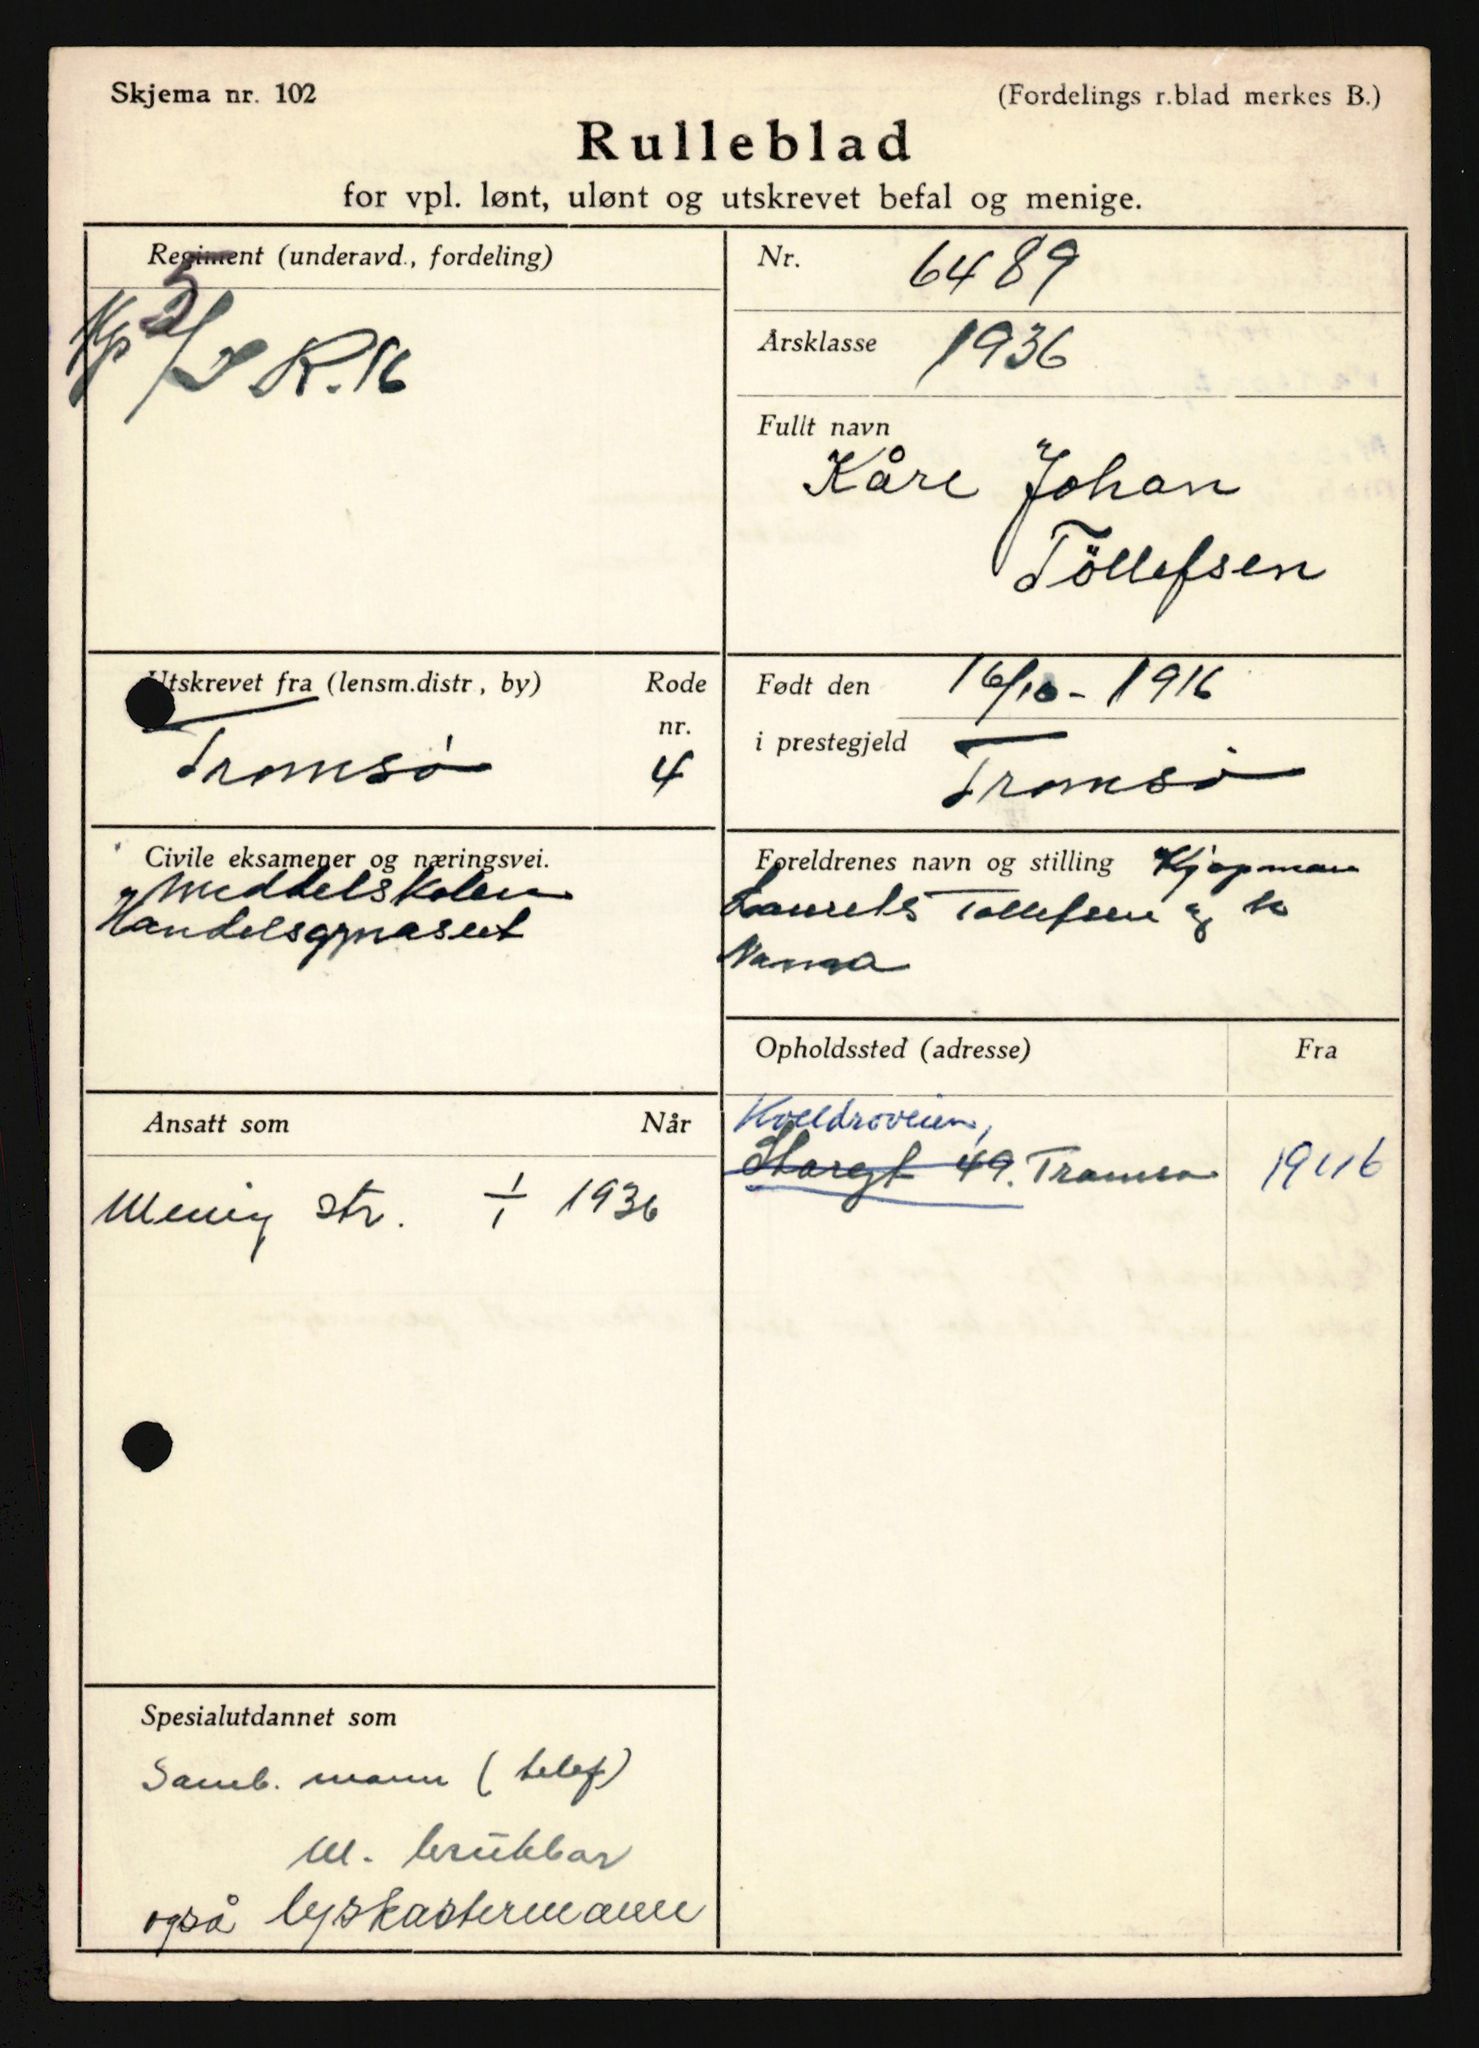 Skjema nr. 102
(Fordelings r.blad merkes B.)
Rulleblad
for vpl. lønt, ulønt og utskrevet befal og menige.
Regiment (underavd., fordeling)
R. 16
Nr. 6489
Årsklasse 1936
Fullt navn
Kåre Johan
Töllefsen
Utskrevet fra (lensm.distr, by)
Rode nr.
Tromsø 4
Født den 16/10 - 1916
i prestegjeld Tromsø
Civile eksamener og næringsvei.
Middelskolen
Handelsgymaset
Foreldrenes navn og stilling Kjøpman
Laurits Tollefsen og h
Nanna
Opholdssted (adresse)
Fra
Storgt 49. Tromsø
Ansatt som
Når
Menig str. 1/1 1936
Spesialutdannet som
Samb. mann (telef)
M. brukbar
også lyskastermann